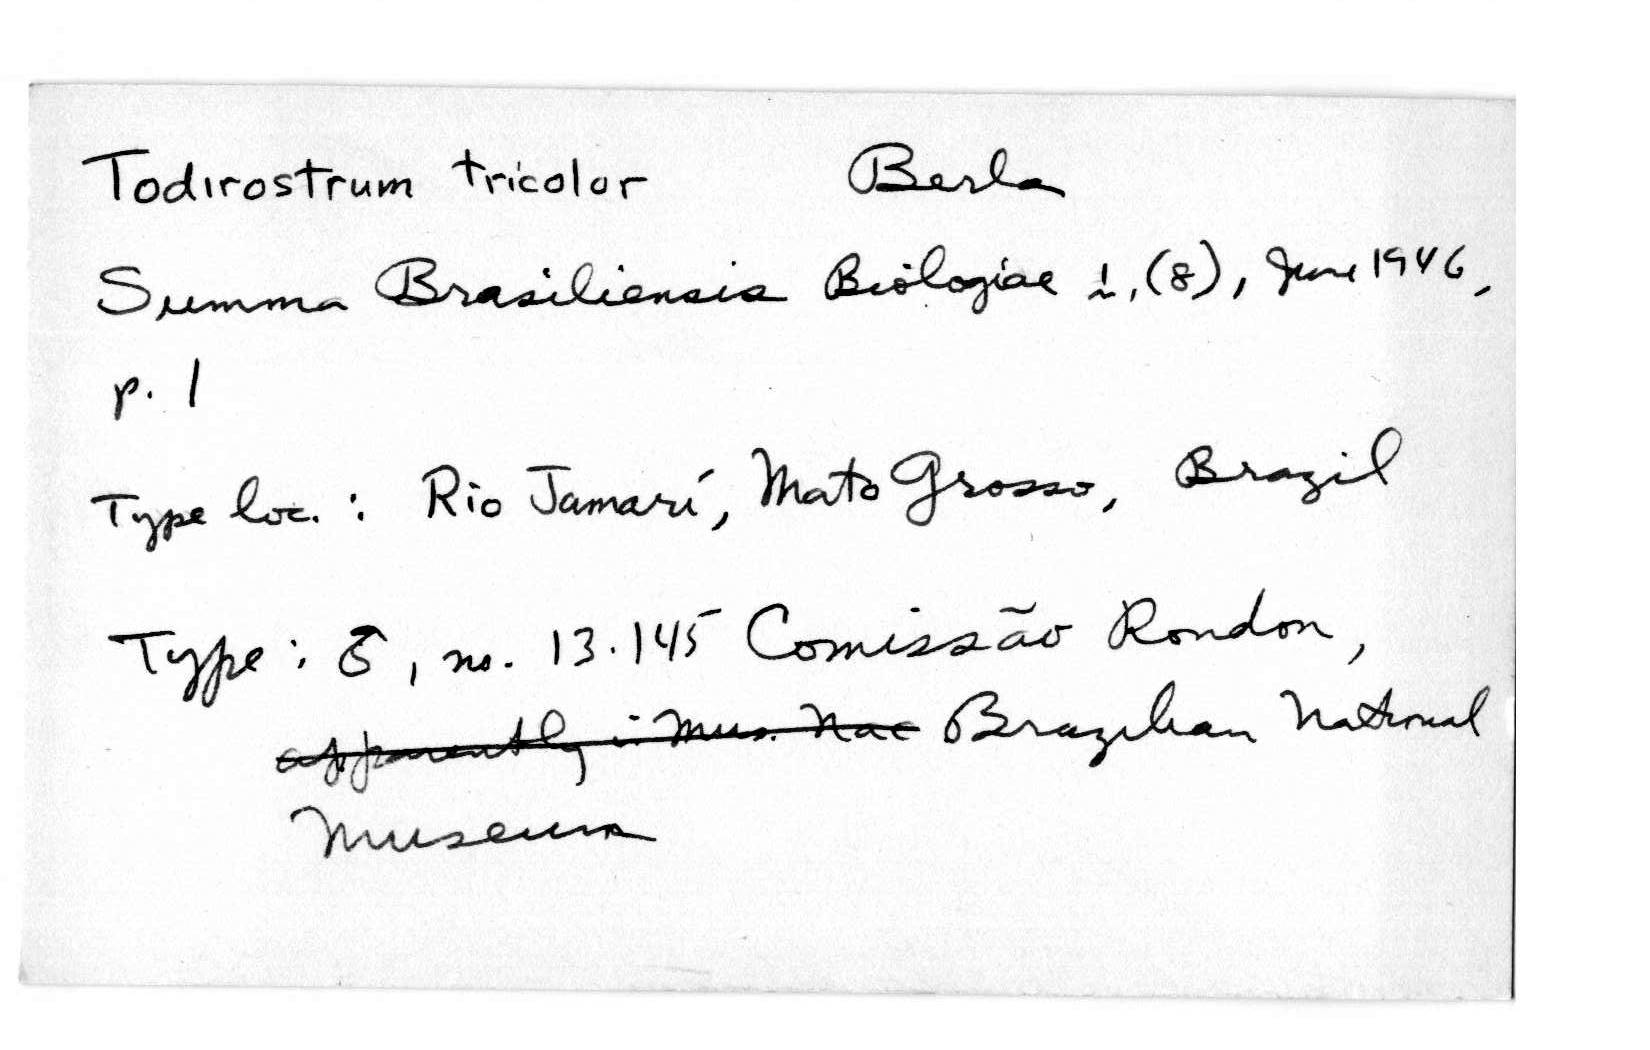 Todirostrum tricolor Berla
Summa Brasiliensis Biologiae 1, (8), June 1946,
p. 1
Type loc. : Rio Jamarí, Mato Grosso, Brazil
Type : ♂, no. 13.145 Comissão Rondon,
apparently in Mus. Nac Brazilian National
Museum